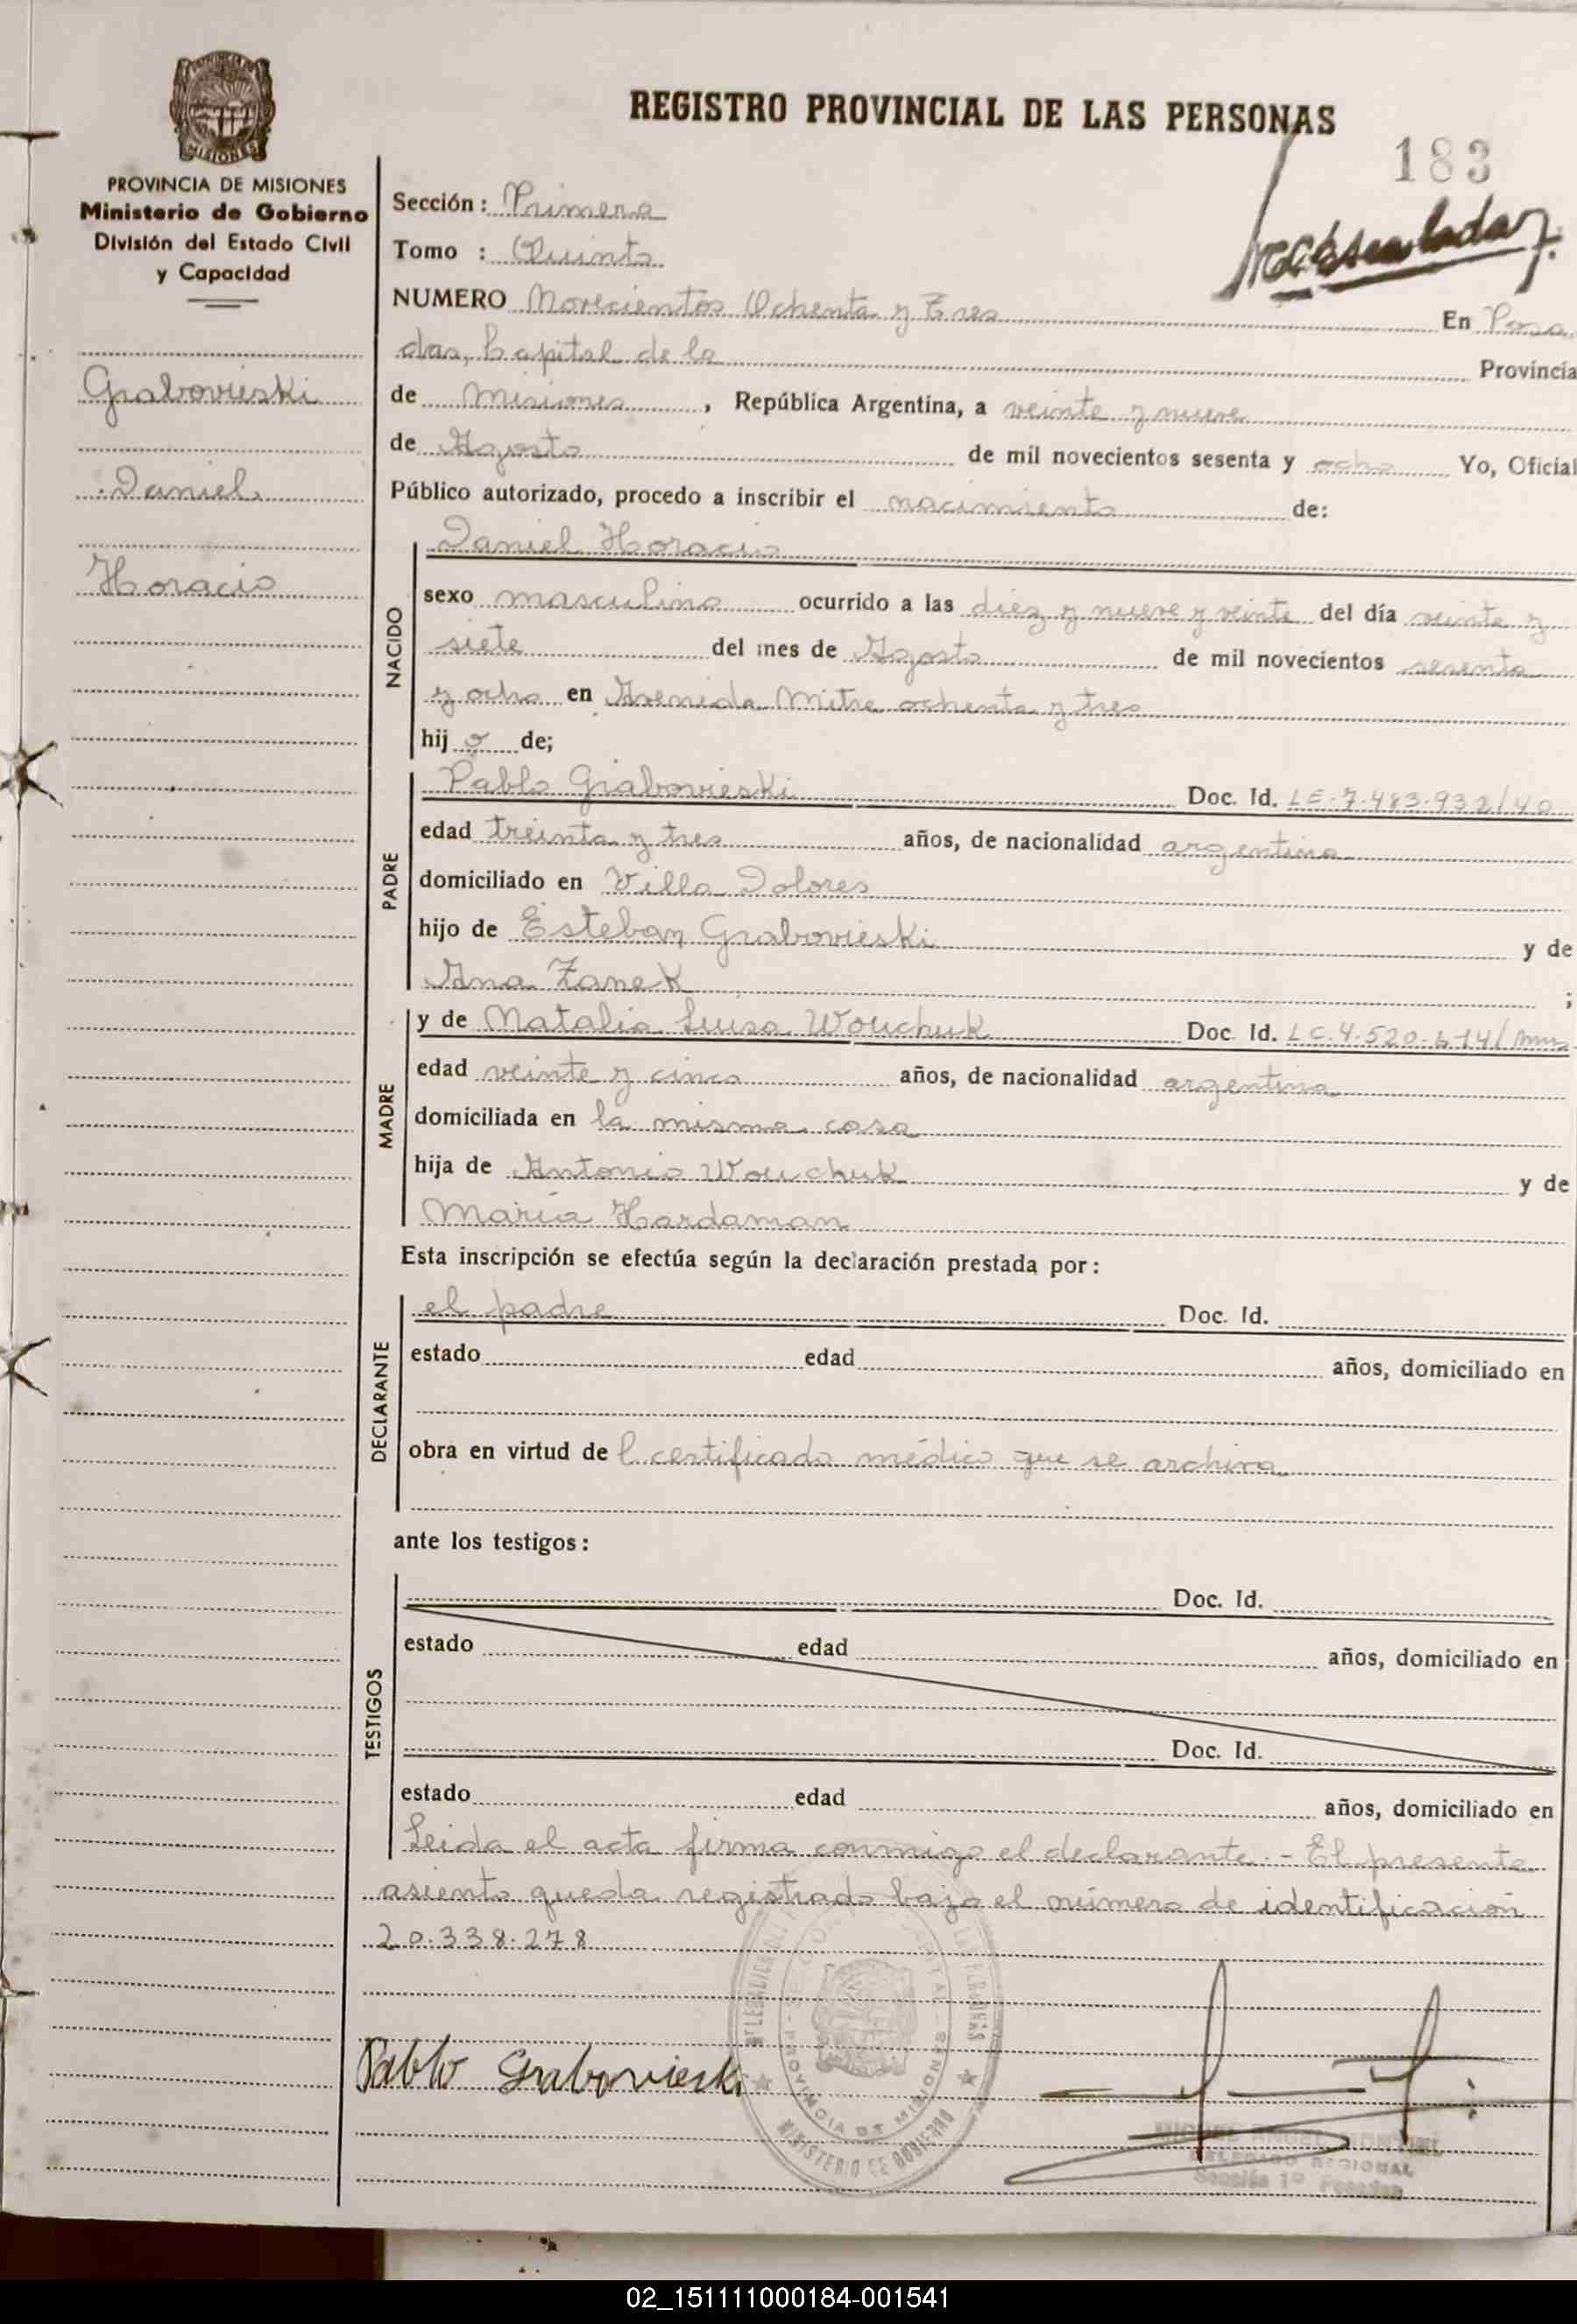 REGISTRO PROVINCIAL DE LAS PERSONAS
183
MISIONES
PROVINCIA DE MISIONES
Ministerio de Gobierno
División del Estado Civil
y Capacidad
Grabovieski
Daniel
Horacio
Sección: Primera
Tomo : Quinto
NUMERO Novecientos Ochenta y Tres En Posa
das, Capital de la Provincia
de Misiones, República Argentina, a veinte y nueve
de Agosto de mil novecientos sesenta y ocho Yo, Oficial
Público autorizado, procedo a inscribir el nacimiento de:
NACIDO
Daniel Horacio
sexo masculino ocurrido a las diez y nueve y veinte del día veinte y
siete del mes de Agosto de mil novecientos sesenta
y ocho en Avenida Mitre ochenta y tres
hijo de;
PADRE
Pablo Grabovieski Doc. Id. LE-7.483.932/40
edad treinta y tres años, de nacionalidad argentina
domiciliado en Villa Dolores
hijo de Esteban Grabovieski y de
Ana Zanek ;
MADRE
y de Natalia Luisa Wouchuk Doc. Id. LC.4.520.614/
edad veinte y cinco años, de nacionalidad argentina
domiciliada en la misma casa
hija de Antonio Wouchuk y de
María Hardaman
Esta inscripción se efectúa según la declaración prestada por:
DECLARANTE
el padre Doc. Id.
estado edad años, domiciliado en
obra en virtud del certificado médico que se archiva
ante los testigos:
TESTIGOS
Doc. Id.
estado edad años, domiciliado en
Doc. Id.
estado edad años, domiciliado en
Leida el acta firma conmigo el declarante.- El presente
asiento queda registrado bajo el número de identificación
20.338.278
Pablo Grabovieski
PROVINCIA DE MISIONES
MINISTERIO DE GOBIERNO
MIGUEL ANGEL
DELEGADO REGIONAL
Sección 1º Posadas
02_151111000184-001541